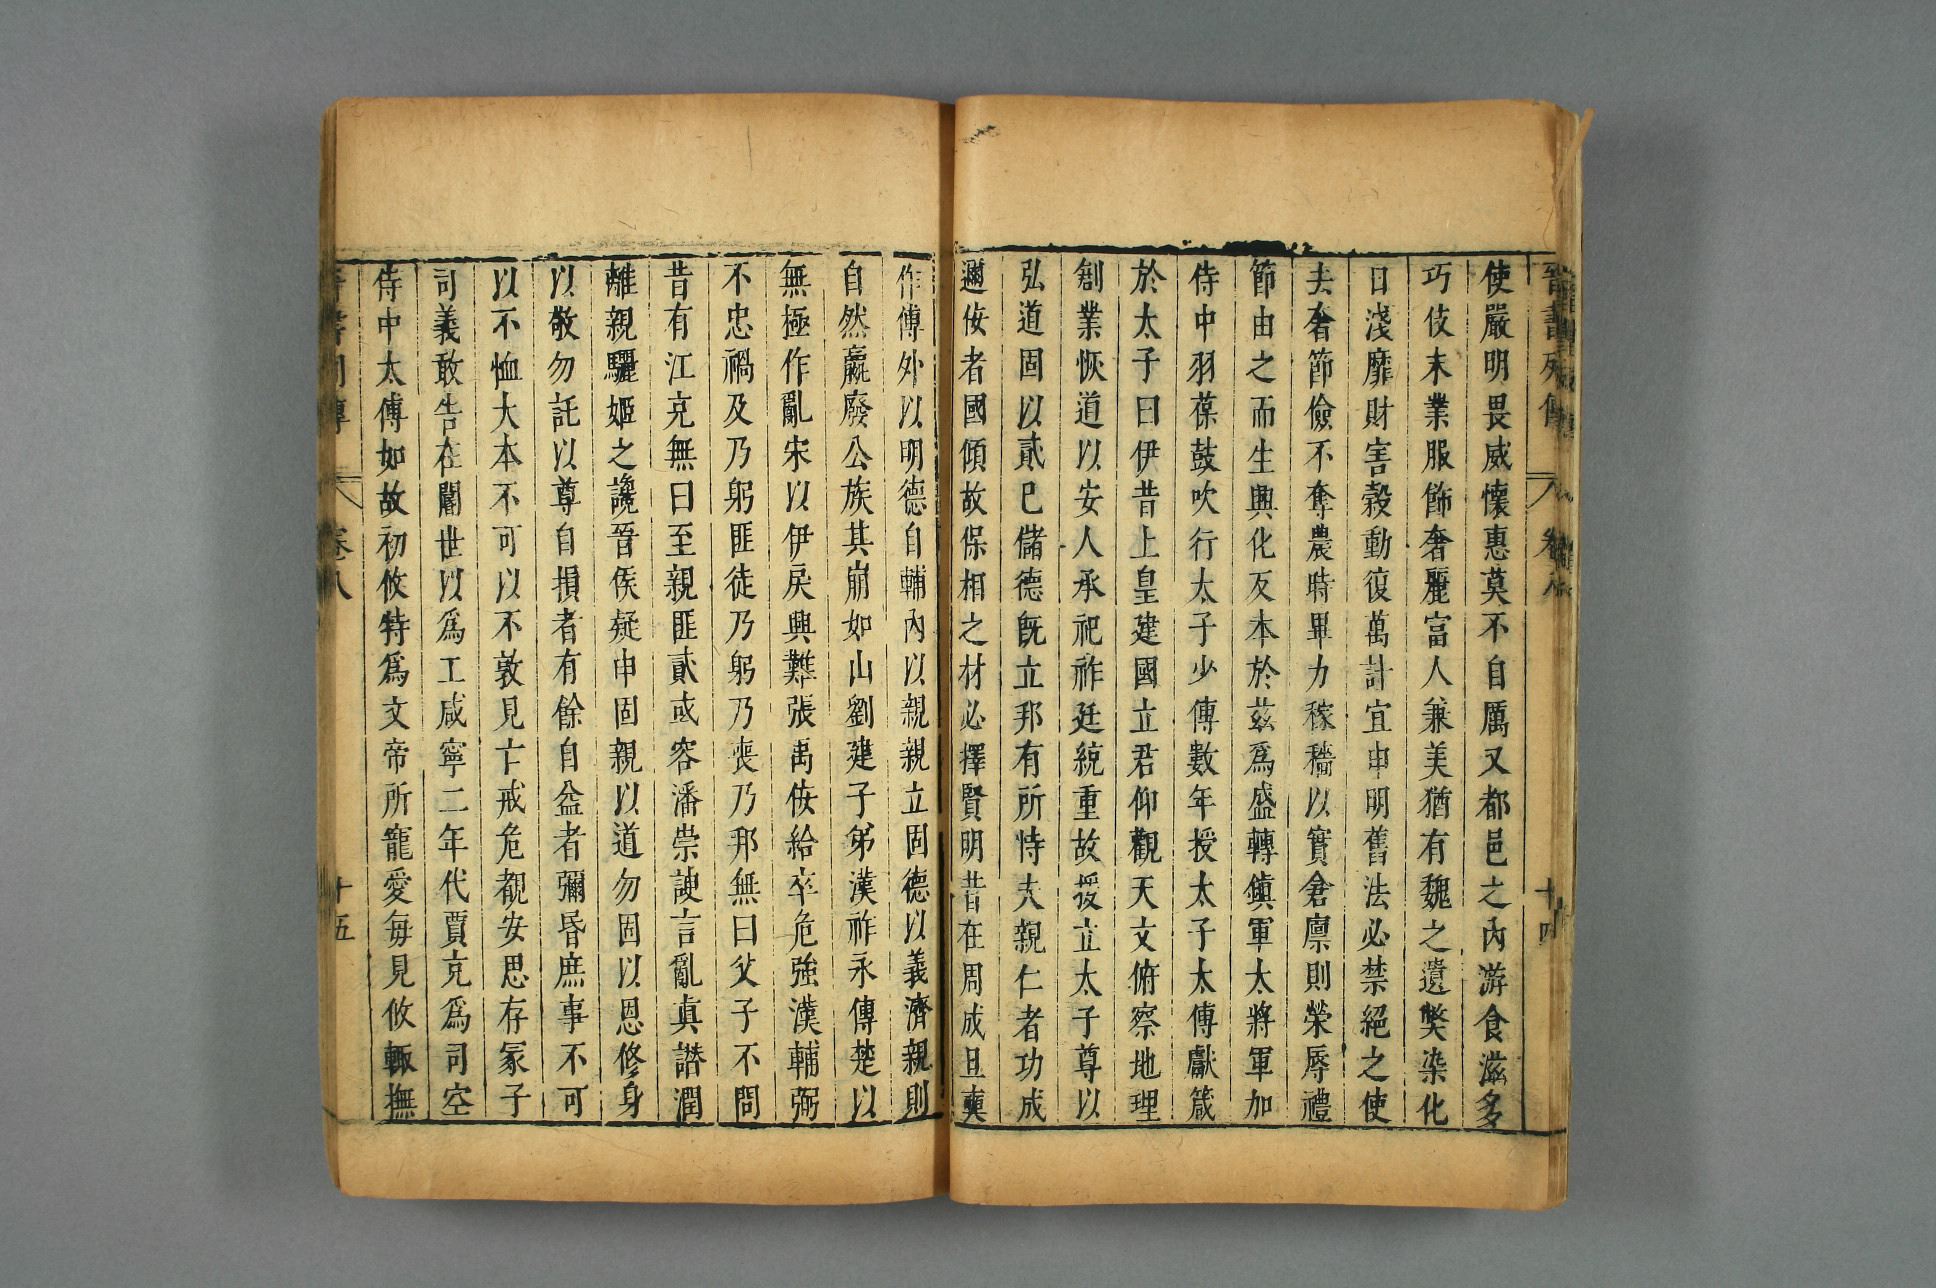 晉書列傳 卷八 十四
使嚴明畏威懷惠莫不自厲又都邑之內游食滋多
巧伎末業服飾奢麗富人兼美猶有魏之遺獘染化
日淺靡財害榖動復萬計宜申明舊法必禁絕之使
去奢節儉不奪農時畢力稼穡以實倉廪則榮辱禮
節由之而生興化反本於兹爲盛轉鎮軍大將軍加
侍中羽葆鼓吹行太子少傅數年授太子太傅獻箴
於太子曰伊昔上皇建國立君仰觀天文俯察地理
創業恢道以安人承祀祚延統重故援立太子尊以
弘道固以貳已儲德旣立邦有所恃夫親仁者功成
邇佞者國傾故保相之材必擇賢明昔在周成旦奭
作傅外以明德自輔內以親親立固德以義濟親則
自然嬴廢公族其崩如山劉建子弟漢祚永傳楚以
無極作亂宋以伊戾興難張禹佞給卒危強漢輔弼
不忠禍及乃躬匪徒乃躬乃喪乃邦無曰父子不問
昔有江充無曰至親匪貳或容潘崇諛言亂真譖潤
離親驪姬之讒晉侯疑申固親以道勿固以恩修身
以敬勿託以尊自損者有餘自益者彌昏庶事不可
以不恤大本不可以不敦見亡戒危覩安思存冢子
司義敢告在閽世以爲工咸寧二年代賈充爲司空
侍中太傅如故初攸特爲文帝所寵愛毎見攸輙撫
卷八 十五